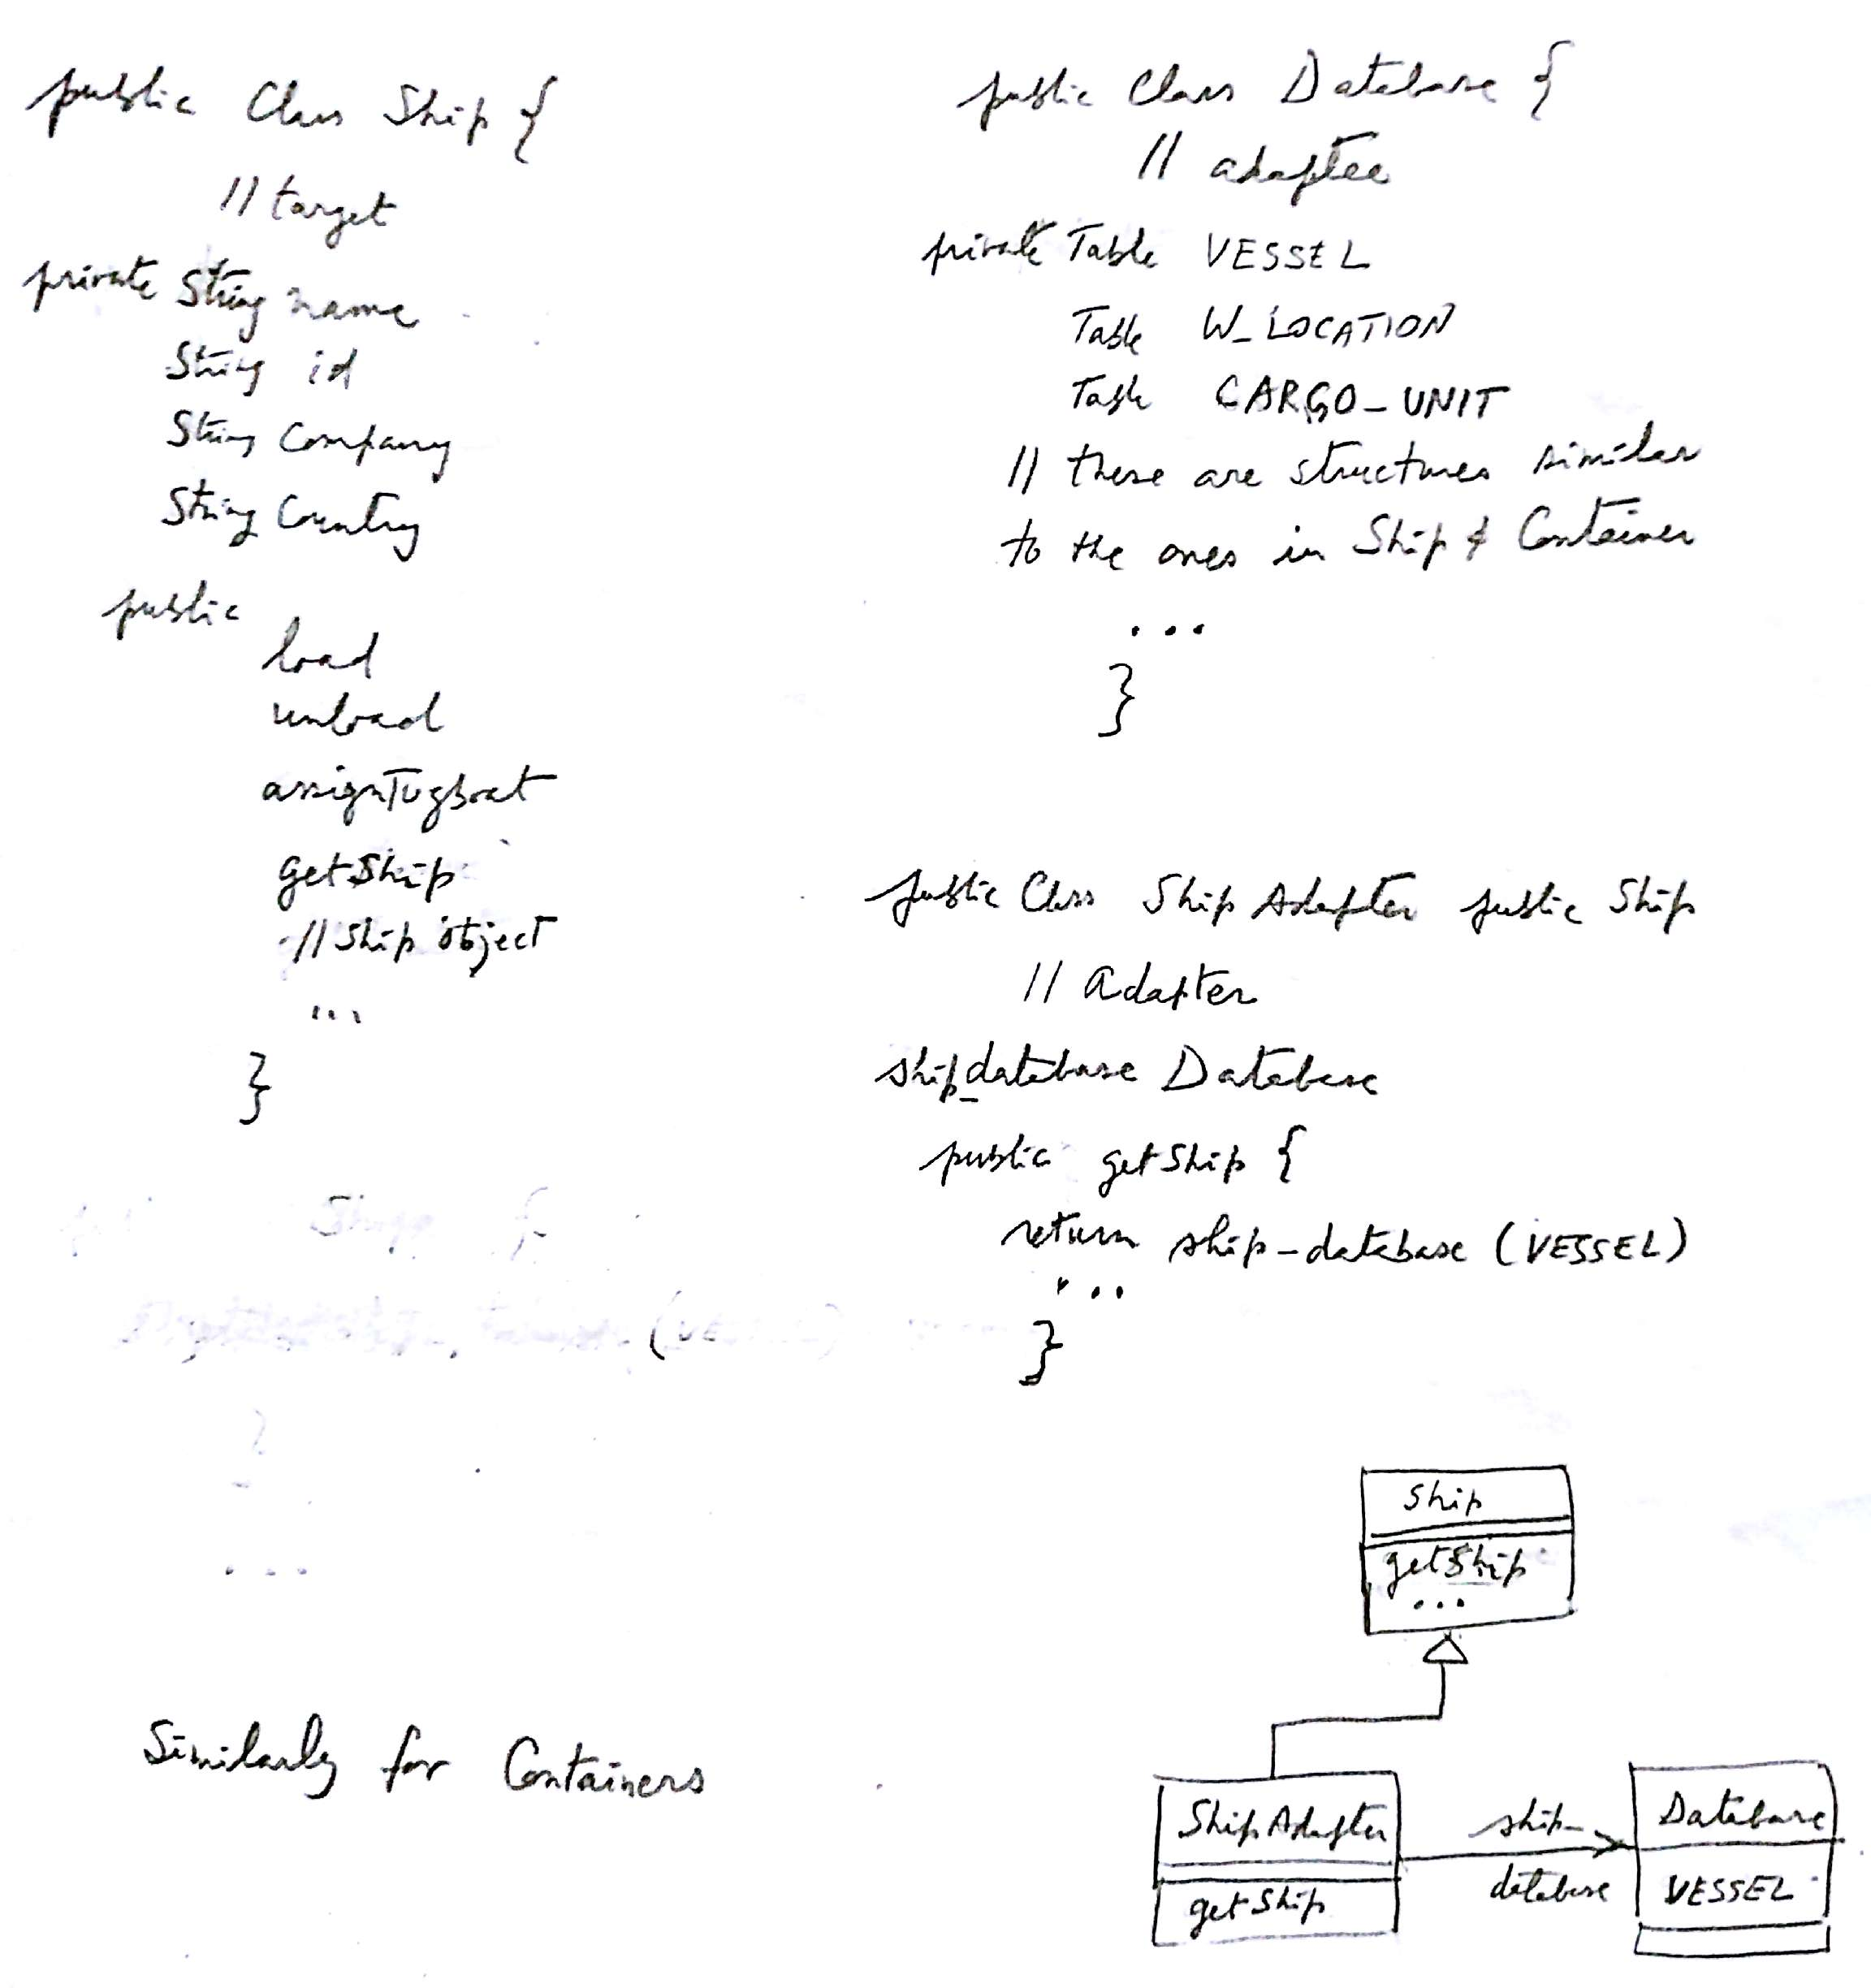 public Class Ship {
//target
private String name
String id
String Company
String Country
public
load
unload
assignTugboat
getShip
//Ship object
...
}
public Class Database {
// adaptee
private Table VESSEL
Table W_LOCATION
Table CARGO_UNIT
// these are structures similar
to the ones in Ship & Container
...
}
public Class ShipAdapter public Ship
// Adapter
ship_database Database
public getShip {
return ship_database (VESSEL)
...
}
Similarly for Containers
Ship
getShip
...
ShipAdapter
getShip
ship_
database
Database
VESSEL